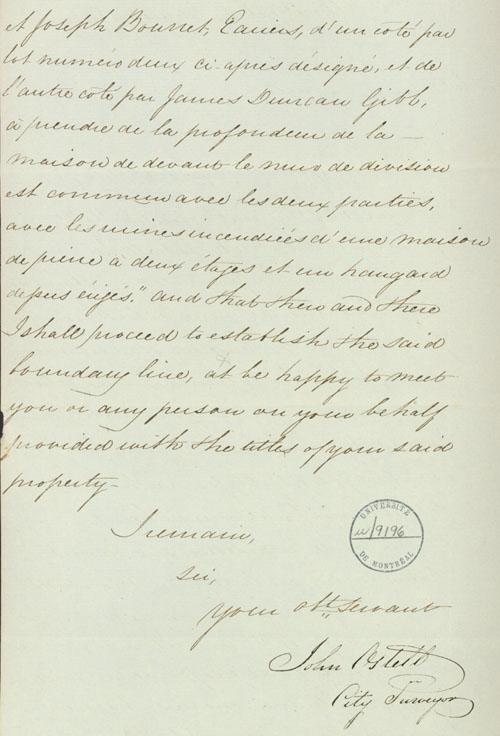 et Joseph Bourret, Ecuiers, d'un coté par
lot numéro deux ci-après désigné, et de
l'autre coté par James Duncan Gibb,
à prendre de la profondeur de la —
maison de devant le mur de division
est commun avec les deux parties,
avec les ruines incendiées d'une maison
de pierre à deux étages et un hangard
depuis érigés." and that then and there
I shall proceed to establish the said
boundary line, at be happy to meet
you or any person on your behalf
provided with the titles of your said
property-
I remain,
Sir,
Your obt. Servant
John Ostell
City Surveyor
UNIVERSITÉ
u/9196
DE MONTRÉAL